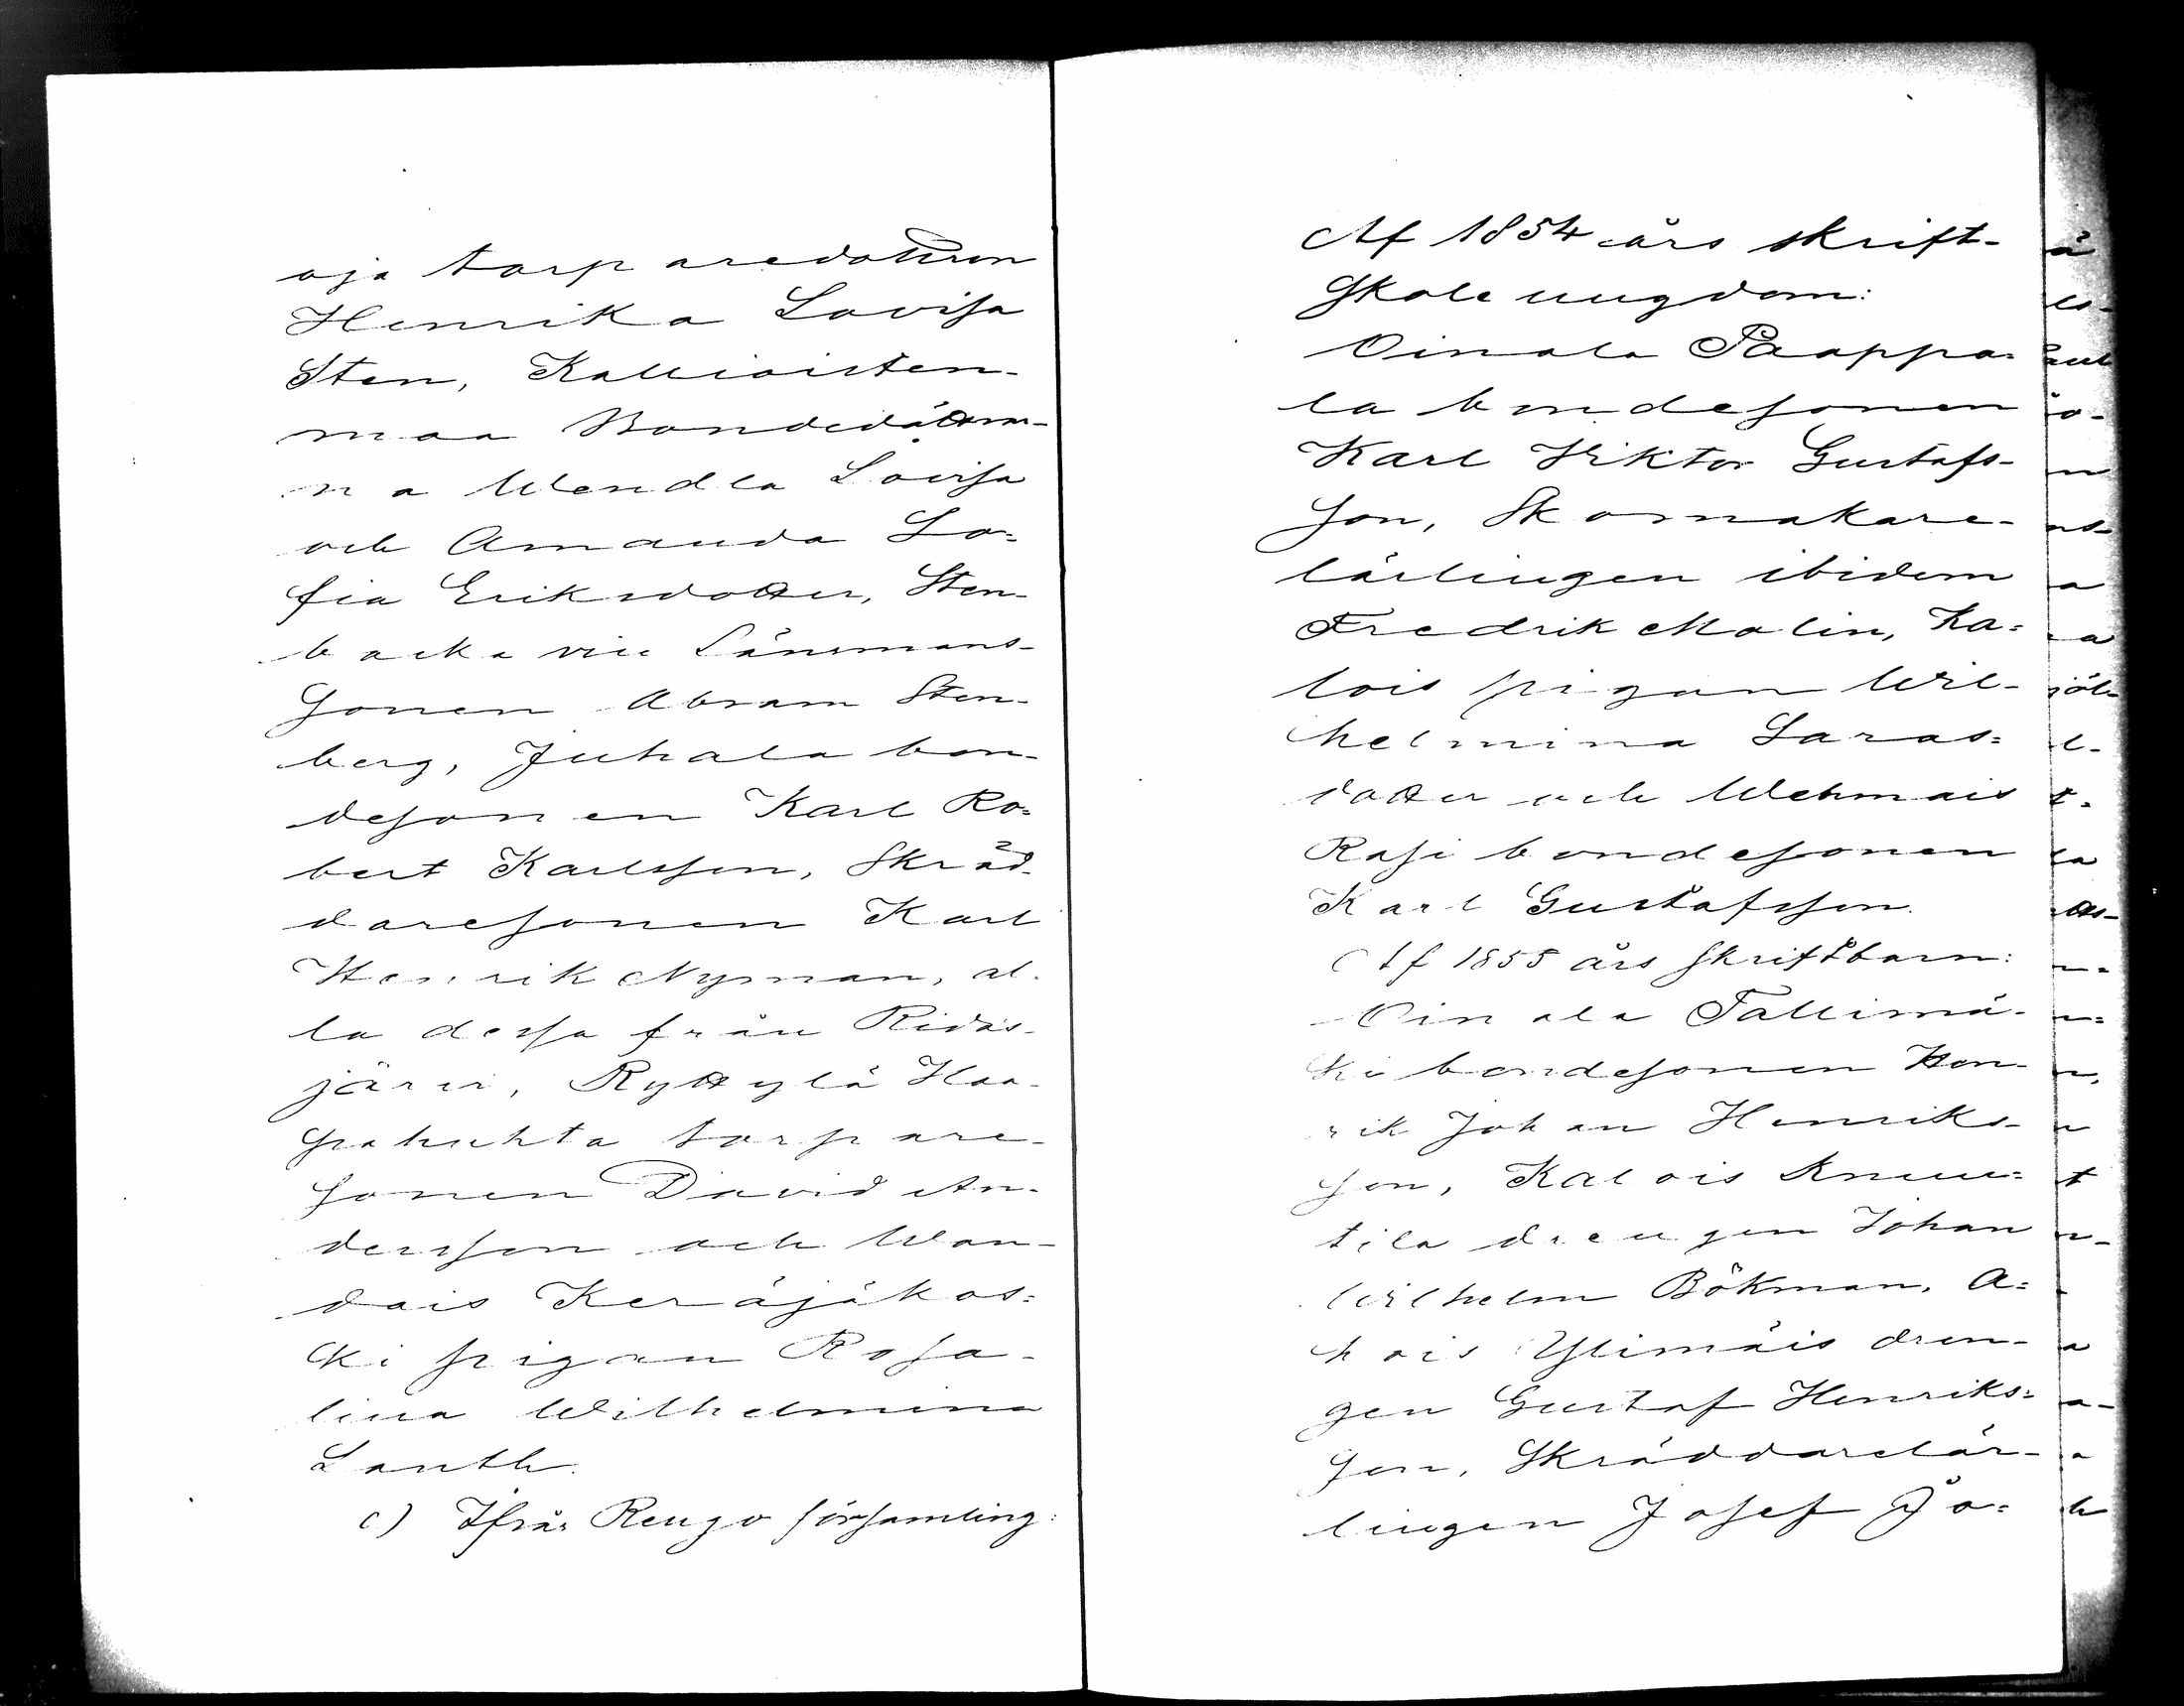 oja torparedottren
Henrika Lovisa
Sten, Kallioisten-
maa Bondedöttrar-
na Wendla Lovisa
och Amanda So=
fia Eriksdotter, Sten-
backa vice Länsmans-
sonen Abram Sten-
berg, Juhala bon-
desonen Karl Ro=
bert Karlsson, Skräd-
daresonen Karl
Henrik Nyman, al-
la dessa från Ridas-
järvi, Ryttylä Haa-
pahuhta torpare-
sonen David An-
dersson och Wan-
dais Keräjäkos=
ki pigan Rosa-
lina Wilhelmina
Lanth.
c) Ifrån Rengo församling:
Af 1854 års skrift-
skole ungdom:
Oinala Paappa=
la bondesonen
Karl Viktor Gustafs-
son, Skomakare-
lärlingen ibidem
Fredrik Malin, Ka=
lois pigan Wil-
helmina Laras=
dotter och Wehmais
Rasi bondesonen
Karl Gustafsson.
Af 1855 års skriftbarn:
Oinala Tallimä-
ki bondesonen Hen-
rik Johan Henriks-
son, Kalois Knuu=
tila drengen Johan
Wilhelm Bökman, A=
hois Ylimäis dren-
gen Gustaf Henriks=
son, Skräddarelär-
lingen Josef Jo=